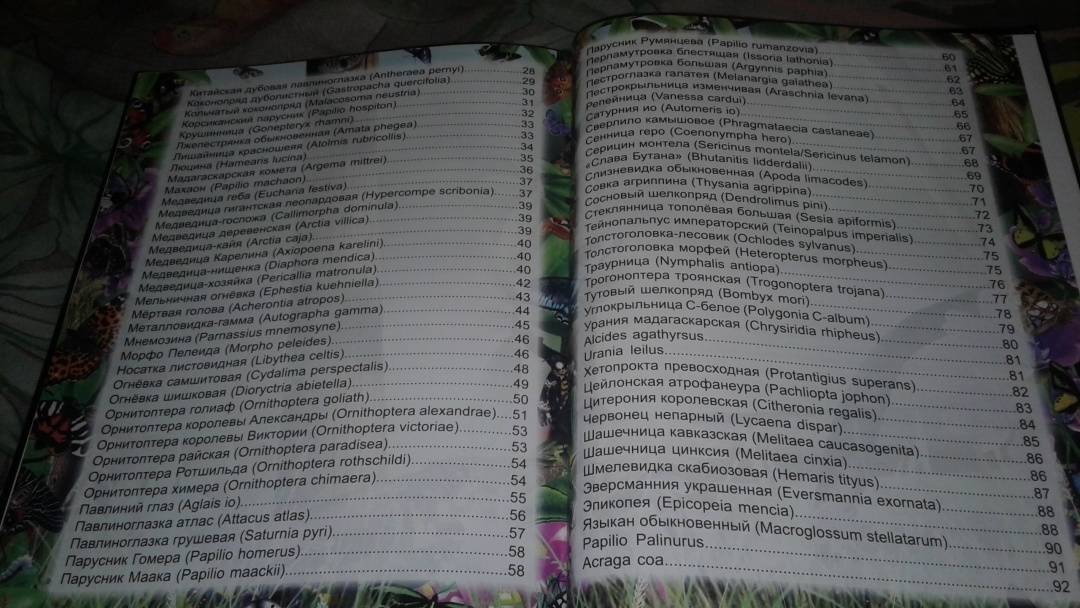 Китайская дубовая павлиноглазка (Antheraea pernyi)..........28
Коконопряд дуболистный (Gastropacha quercifolia)..........29
Кольчатый коконопряд (Malacosoma neustria)..........30
Корсиканский парусник (Papilio hospiton)..........31
Крушинница (Gonepteryx rhamni)..........32
Лжепестрянка обыкновенная (Amata phegea)..........33
Лишайница красношеяя (Atolmis rubricollis)..........33
Люцина (Hamearis lucina)..........34
Мадагаскарская комета (Argema mittrei)..........35
Махаон (Papilio machaon)..........36
Медведица геба (Eucharia festiva)..........37
Медведица гигантская леопардовая (Hypercompe scribonia)..........37
Медведица-госпожа (Callimorpha dominula)..........39
Медведица деревенская (Arctia villica)..........39
Медведица-кайя (Arctia caja)..........39
Медведица Карелина (Axiopoena karelini)..........40
Медведица-нищенка (Diaphora mendica)..........40
Медведица-хозяйка (Pericallia matronula)..........40
Мельничная огнёвка (Ephestia kuehniella)..........42
Мёртвая голова (Acherontia atropos)..........43
Металловидка-гамма (Autographa gamma)..........44
Мнемозина (Parnassius mnemosyne)..........45
Морфо Пелеида (Morpho peleides)..........46
Носатка листовидная (Libythea celtis)..........46
Огнёвка самшитовая (Cydalima perspectalis)..........48
Огнёвка шишковая (Dioryctria abietella)..........49
Орнитоптера голиаф (Ornithoptera goliath)..........50
Орнитоптера королевы Александры (Ornithoptera alexandrae)....51
Орнитоптера королевы Виктории (Ornithoptera victoriae)..........53
Орнитоптера райская (Ornithoptera paradisea)..........53
Орнитоптера Ротшильда (Ornithoptera rothschildi)..........54
Орнитоптера химера (Ornithoptera chimaera)..........54
Павлиний глаз (Aglais io)..........55
Павлиноглазка атлас (Attacus atlas)..........56
Павлиноглазка грушевая (Saturnia pyri)..........57
Парусник Гомера (Papilio homerus)..........58
Парусник Маака (Papilio maackii)..........58
Парусник Румянцева (Papilio rumanzovia)..........60
Перламутровка блестящая (Issoria lathonia)..........61
Перламутровка большая (Argynnis paphia)..........62
Пестроглазка галатея (Melanargia galathea)..........63
Пестрокрыльница изменчивая (Araschnia levana)..........64
Репейница (Vanessa cardui)..........65
Сатурния ио (Automeris io)..........66
Сверлило камышовое (Phragmataecia castaneae)..........67
Сенница геро (Coenonympha hero)..........67
Серицин монтела (Sericinus montela/Sericinus telamon)..........68
«Слава Бутана» (Bhutanitis lidderdalii)..........69
Слизневидка обыкновенная (Apoda limacodes)..........70
Совка агриппина (Thysania agrippina)..........71
Сосновый шелкопряд (Dendrolimus pini)..........72
Стеклянница тополёвая большая (Sesia apiformis)..........73
Тейнопальпус императорский (Teinopalpus imperialis)..........74
Толстоголовка-лесовик (Ochlodes sylvanus)..........75
Толстоголовка морфей (Heteropterus morpheus)..........75
Траурница (Nymphalis antiopa)..........76
Трогоноптера троянская (Trogonoptera trojana)..........77
Тутовый шелкопряд (Bombyx mori)..........78
Углокрыльница С-белое (Polygonia C-album)..........79
Урания мадагаскарская (Chrysiridia rhipheus)..........80
Alcides agathyrsus..........81
Urania leilus..........81
Хетопрокта превосходная (Protantigius superans)..........82
Цейлонская атрофанеура (Pachliopta jophon)..........83
Цитерония королевская (Citheronia regalis)..........84
Червонец непарный (Lycaena dispar)..........85
Шашечница кавказская (Melitaea caucasogenita)..........86
Шашечница цинксия (Melitaea cinxia)..........86
Шмелевидка скабиозовая (Hemaris tityus)..........87
Эверсманния украшенная (Eversmannia exornata)..........88
Эпикопея (Epicopeia mencia)..........88
Языкан обыкновенный (Macroglossum stellatarum)..........90
Papilio Palinurus..........91
Acraga coa..........92